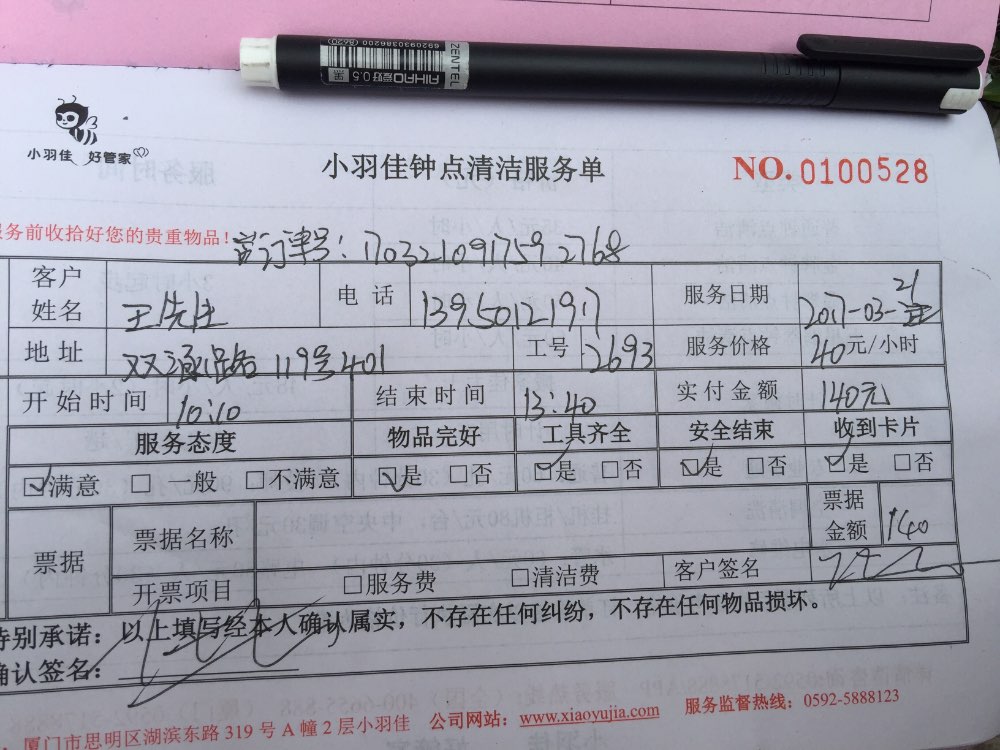 ZENTEL
AIHAO爱好0.5 黑
6920930386200 (8620)
小羽佳 好管家
小羽佳钟点清洁服务单
NO.0100528
服务前收拾好您的贵重物品!
订单号:170321091759 2768
客户姓名 王先生 电话 13950121917 服务日期 2017-03-21
地址 119号401 工号 2693 服务价格 40元/小时
开始时间 10:10 结束时间 13:40 实付金额 140元
服务态度 物品完好 工具齐全 安全结束 收到卡片
☑满意 □一般 □不满意 ☑是 □否 ☑是 □否 ☑是 □否 ☑是 □否
票据 票据名称 票据金额 140
开票项目 □服务费 □清洁费 客户签名
特别承诺:以上填写经本人确认属实,不存在任何纠纷,不存在任何物品损坏。
确认签名:
:厦门市思明区湖滨东路 319 号 A 幢 2 层小羽佳 公司网站:www.xiaoyujia.com 服务监督热线:0592-5888123